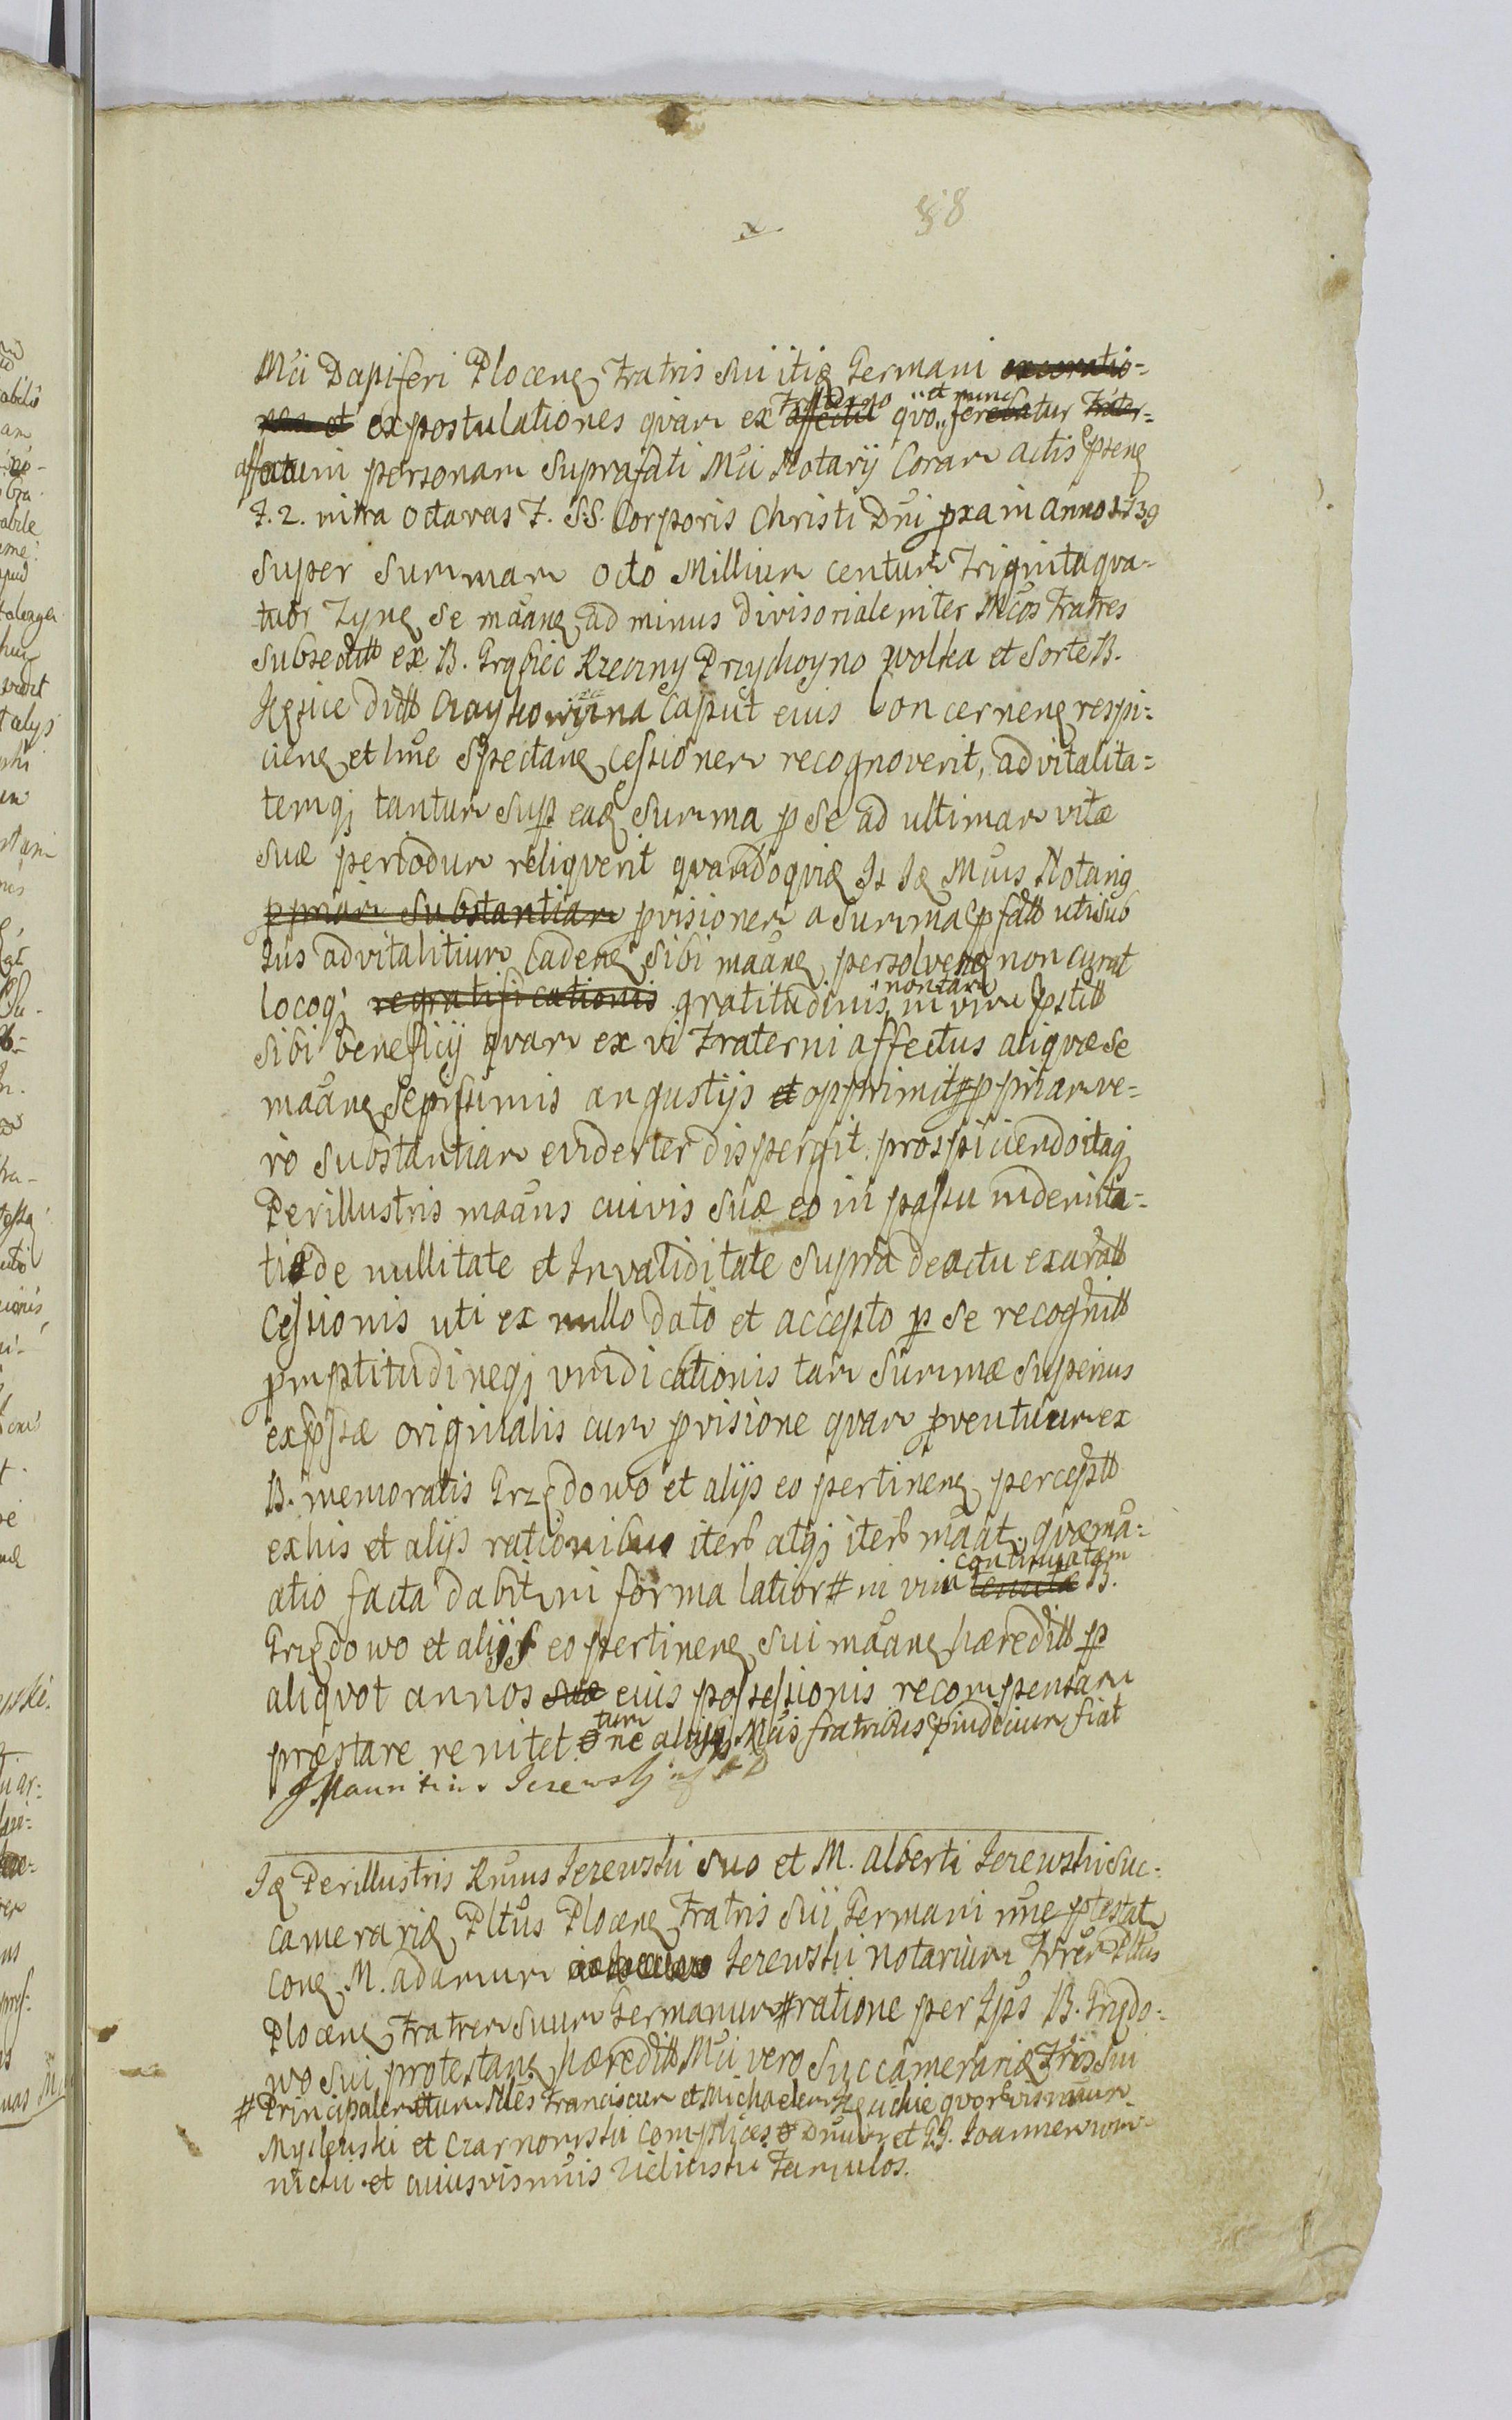 x 88
Mci Dapiferi Plocen Fratris sui itid Germani exoratio-
nes et expostulationes qvam ex Fraterno affectu qvo et nunc ferebatur Frater-
affatum personam suprafati Mci Notarij Coram Actis psen
F. 2. infra octavas F. S.S. Corporis Christi Dni pxa in anno 1739
super summam octo Millium centum Triginta qva-
tuor Zyn se maan ad minus divisoriale inter Mcos Fratres
subsecutt ex B. Grąbiec Rzeczny Przychoyno wolka et Sorte B.
ditt Czaykowizna caput eius Concernen respi-
cien et hunc spectan cessionem recognoverit, advitalita-
temqj tantum sup ead summa p se ad ultimam vitæ
suæ periodum reliqverit qvandoqvid Is Id Mcus Notarig
ppriam substantiam pvisionem a summa pfatt uti sub
Jus advitalitium caden sibi maan persolven non curat
locoqj regratificationis gratitudinis non tam in vim pstitt
sibi beneficij qvam ex vi Fraterni affectus aliqvæ se
maan angustijs et opprimit ppriam ve-
ro substantiam evidenter dispergit, prospiciendo itaqj
Perillustris maans cuivis suæ eo in passu indemnita-
ti de nullitate et Invaliditate supra de actu exaratt
Cessionis uti ex nullo dato et accepto p se recognitt
pmptitudineqj vindicationis tam summæ superius
expssæ originalis cum pvisione qvam pventuum ex
B. memoratis Grzędowo et alijs eo pertinen perceptt
ex his et alijs rationibus iterb atqj iterb maat, qvæ ma-
atio facta dabit in forma latiori # in vim tenutæ continuatam B.
Grzędowo et alijs eo pertinen sui maan hæreditt p
aliqvot annos suæ eius possessionis recompensam
præstare renitet tum ne alijsqj Mcis fratribus pjudicium fiat
J Mauritius Jezewski
Id Perillustris Rmus Jezewski suo et M. Alberti Jezewski suc-
camerarij Pltus Plocen Fratris sui Germani nne ptestat
con M. Adamum Jezewski notarium Trrem Pltus
Plocen Fratrem suum Germanum # ratione per Ips B. Grzędo-
wo sui protestan hæreditt Mci vero succamerarij Fris sui
# Principalem tum Nles Franciscum et Michaelem qvorvismcum
Myslenski et Czarnomski complices Dnum et GG. Joannem
et cuiusvis mcis Zielinski Famulos.